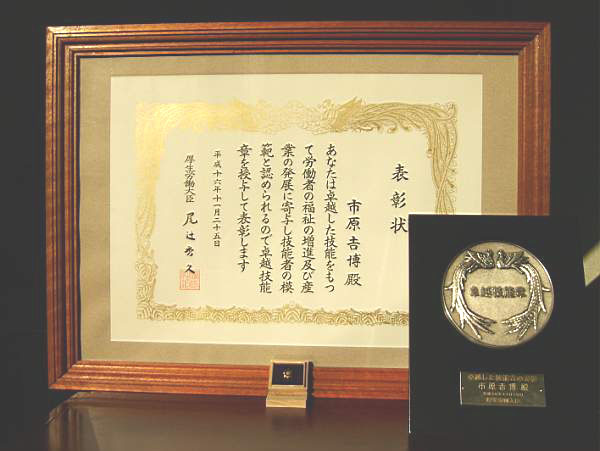 表彰状
市原吉博殿
あなたは卓越した技能をもつ
て労働者の福祉の増進及び産
業の発展に寄与し技能者の模
範と認められるので卓越技能
章を授与して表彰します
平成十六年十一月二十五日
厚生労働大臣 尾辻秀久
卓越技能章
市原吉博 殿